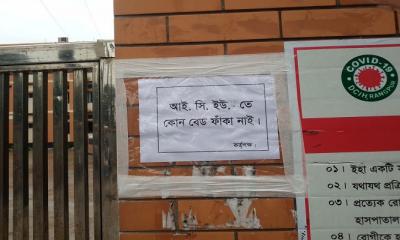 আই. সি. ইউ. তে
কোন বেড ফাঁকা নাই।
কর্তৃপক্ষ।
COVID-19
DCIH, RANGPUR
০১। ইহা একটি
০২। যথাযথ
০৩। প্রত্যেক
হাসপাতাল
০৪। রোগীকে